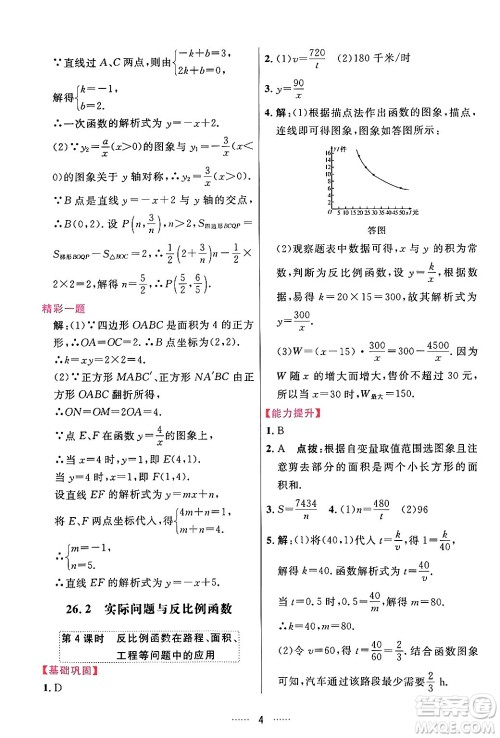 ∵直线过 A、C 两点,即 {-k+b=3, 2k+b=0,
解得 {k=-1, b=2.
∴一次函数的解析式为 y=-x+2.
(2)∵y₂=a/x(x>0)的图象与 y₁=-3/x(x
<0)的图象关于 y 轴对称,∴y₂=3/x(x>0).
∵B 点是直线 y=-x+2 与 y 轴的交点,
∴B(0,2). 设 P(n,3/n),n>2,∵S四边形BCQP=
S梯形BOQP-S△BOC=2,∴1/2(2+3/n)n-1/2×
2×2=2,解得 n=5/2,∴P(5/2,6/5).
精彩一题
解:(1)∵四边形 OABC 是面积为 4 的正方
形,∴OA=OC=2.∴B(2,2).
∴k=xy=2×2=4.
(2)∵正方形 MABC′、正方形 NA′BC 由正
方形 OABC 翻折所得,
∴ON=OM=2OA=4.
∵点 E、F 在函数 y=4/x 的图象上,
∴当 x=4 时,y=1,即 E(4,1),
当 y=4 时,x=1,即 F(1,4).
设直线 EF 的解析式为 y=mx+n,
将 E、F 两点坐标代入,得 {4m+n=1, m+n=4,
∴{m=-1, n=5.
∴直线 EF 的解析式为 y=-x+5.
26.2 实际问题与反比例函数
第 4 课时 反比例函数在路程、面积、
工程等问题中的应用
【基础巩固】
1. D
2. (1)v=720/t (2)180 千米/时
3. y=90/x
4. 解:(1)根据描点法作出函数的图象,描点,
连线即可得出函数的图象如答图所示:
y/件
16
14
12
10
8
6
4
2
0 5 10 15 20 25 30 35 40 45 50 x/元
答图
(2)观察题表中数据可得,x 与 y 的积为常
数,判断为反比例函数,设 y=k/x,则 k=15×
20=300,故其函数解析式为 y=300/x.
(3)W=(x-15)·300/x=300-4500/x,显然
W 随 x 的增大而增大,但 x 不超过 30 元,故
当 x=30 时,W最大=150.
【能力提升】
1. B
2. A 点拨:根据自变量取值范围选图象并注
意剪去部分的面积是两个小长方形的面
积和.
3. S=7434/n 4. (1)n=480/t (2)96
5. 解:(1)将(40,1)代入 t=k/v,得 1=k/40,解得
k=40,∴函数解析式为 t=40/v.
当 t=0.5 时,0.5=40/m,解得 m=80,
∴k=40,m=80.
(2)令 v=60,得 t=40/60=2/3,结合函数图象
可知,汽车通过该路段最少需要 2/3 h.
4